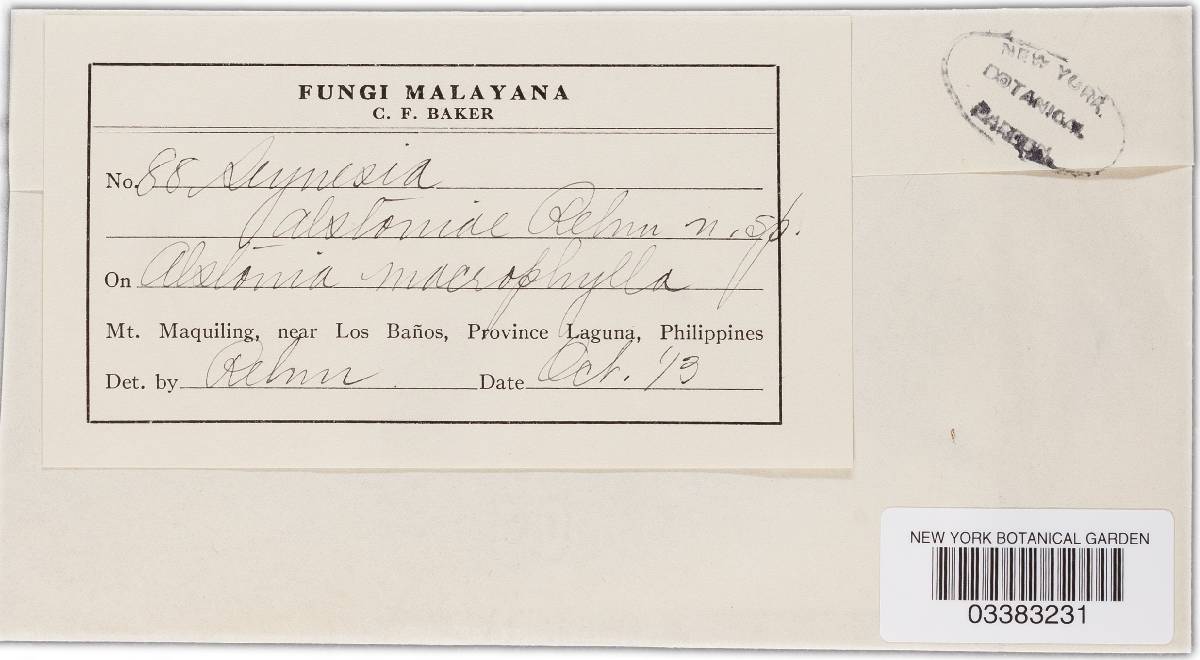 FUNGI MALAYANA
C. F. BAKER
No. 88 Seynesia
alstoniae Rehm n. sp.
On Alstonia macrophylla
Mt. Maquiling, near Los Baños, Province Laguna, Philippines
Det. by Rehm Date Oct. '13
NEW YORK
BOTANICAL
GARDEN
NEW YORK BOTANICAL GARDEN
03383231